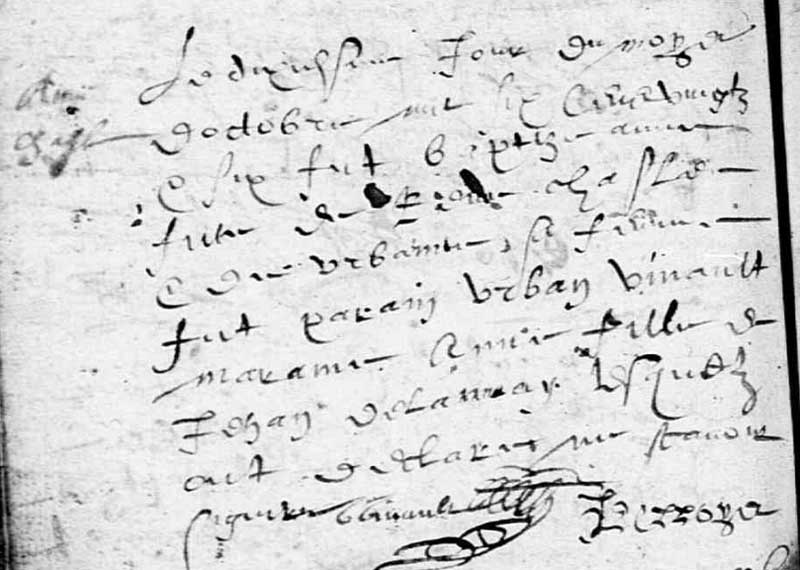 Le dixiesme Jour du moys
doctobre mil six Cens vingtz
e six fut baptizee anne
fille de Pierre chasles
e de urbanne sa femme
fut parain Urban Vinault
maraine Anne fille de
Jehan Delaunay Lesquelz
ont declare ne scavoir
signer